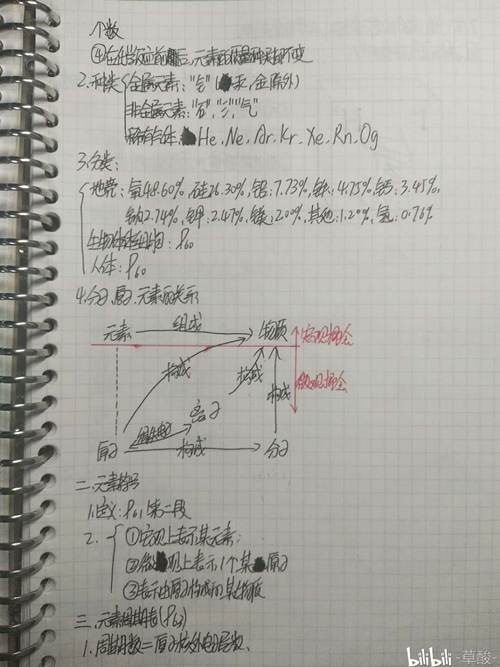 个数
④在化学反应前后,元素的质量和种类都不变
2.种类 金属元素:"钅"(汞,金除外)
非金属元素:"石","氵","气"
稀有气体:He、Ne、Ar、Kr、Xe、Rn、Og
3.分类:
地壳:氧48.60%,硅26.30%,铝:7.73%,铁:4.75%,钙:3.45%,
钠2.74%,钾:2.47%,镁:2.00%,其他:1.20%,氢:0.76%
生物体 P60
人体:P60
4.分子、原子、元素的关系
元素 组成 物质 宏观概念
构成 构成 构成 微观概念
离子
得失电子
原子 构成 分子
二.元素符号
1.定义:P61 第二段
2. ①宏观上表示某元素;
②微观上表示1个某原子
③表示由原子构成的某物质
三.元素周期表(P62)
1.周期数=原子核外电子层数、
bilibili -草酸-